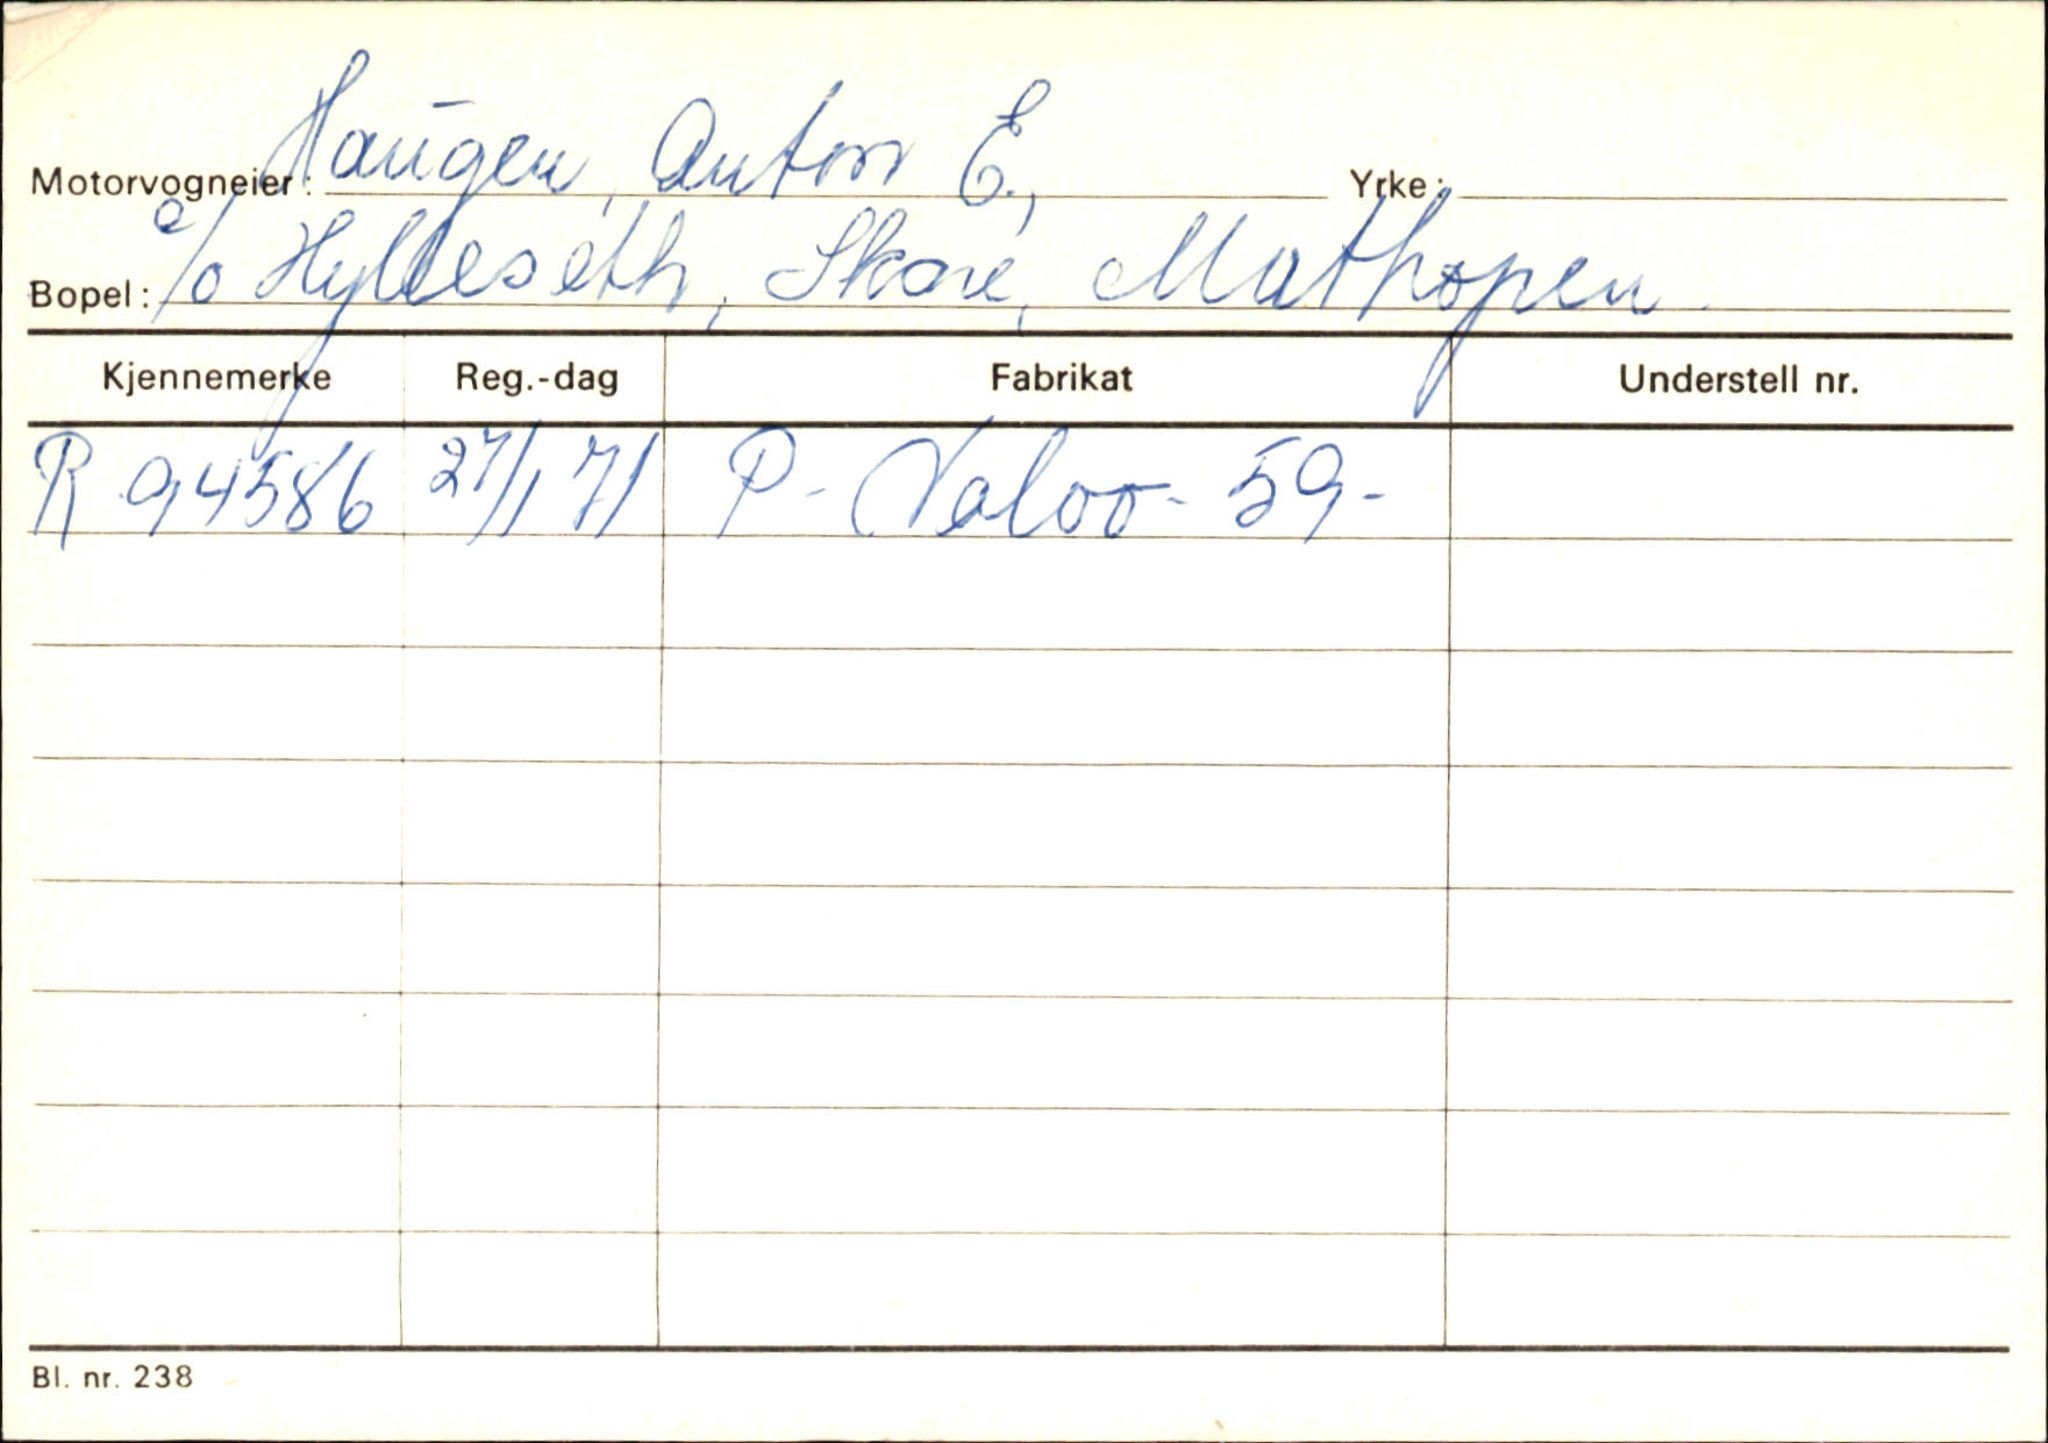 Motorvogneier: Haugen, Anton E., Yrke:
Bopel: c/o Hylleseth, Skare, Mathopen.
Kjennemerke Reg.-dag Fabrikat Understell nr.
R 94586 27/1 71 P - Volvo - 59 -
Bl. nr. 238